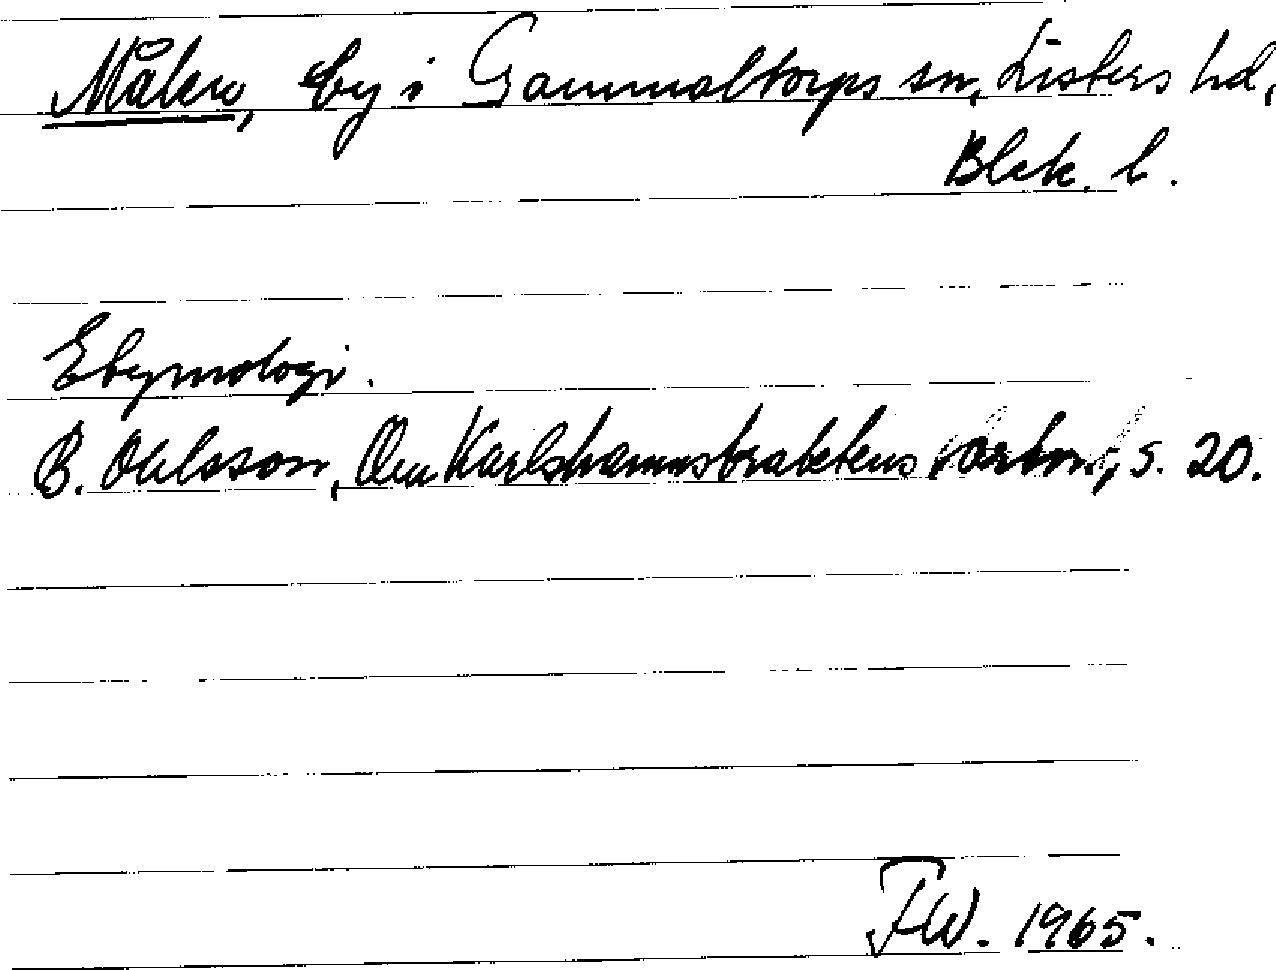 Målen, by i Gammaltorps sn, Listers hd,
Blek. l.
Etymologi.
B. Ohlsson, Om Karlshamnstraktens s. 20.
FW. 1965.